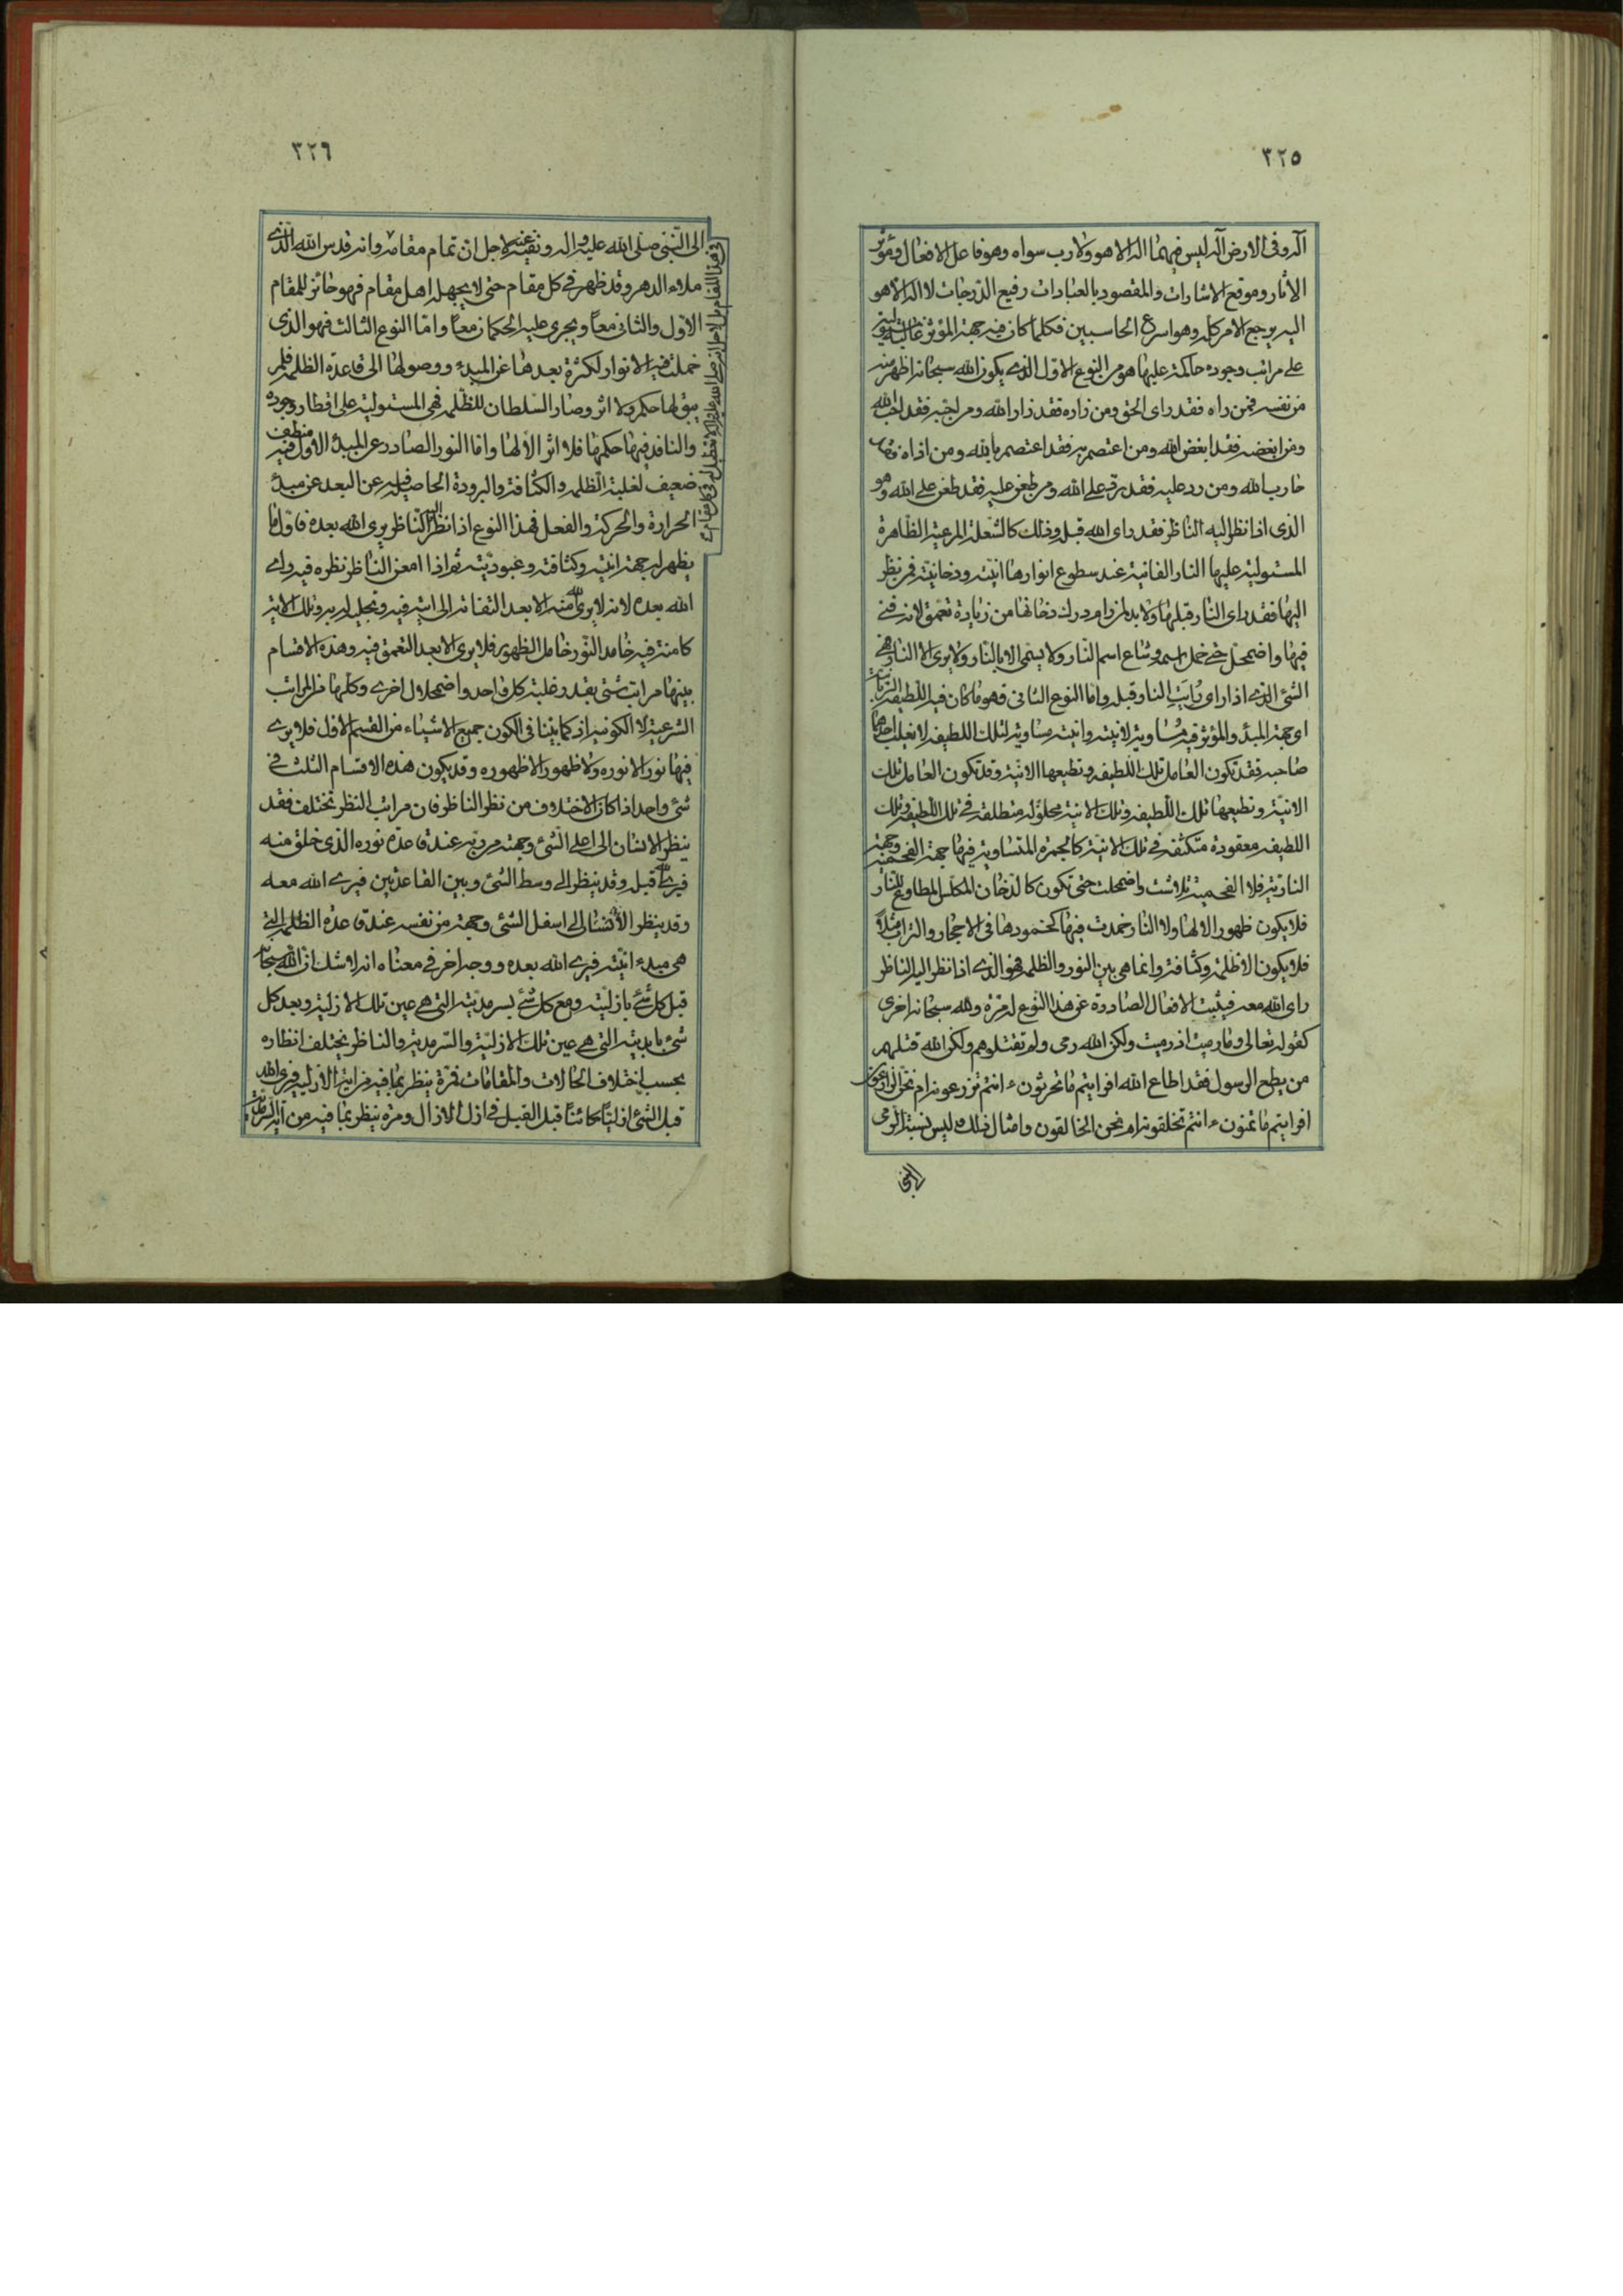 ٣٢٥
اله وفى الارض اله ليس فيهما اله الا هو ولا رب سواه وهو فاعل الافعال ومؤثر
الاثار وموقع الاشارات والمقصود بالعبارات رفيع الدرجات لا اله الا هو
اليه يرجع الامر كله وهو اسرع الحاسبين فكلما كان فيه جهة المؤثر غالبة مستولية
على مراتب وجوده حاكمة عليها هو من النوع الاول الذي يكون الله سبحانه اظهر منه
من نفسه فمن راه فقد راى الحق ومن زاره فقد زار الله ومن احبه فقد احب الله
ومن ابغضه فقد ابغض الله ومن اعتصم به فقد اعتصم بالله ومن اذاه فقد
حارب الله ومن رد عليه فقد رد على الله ومن طعن عليه فقد طعن على الله وهو
الذى اذا نظر اليه الناظر فقد راى الله قبله وذلك كالشعلة المرئية الظاهرة
المستولية عليها النار الفانية عند سطوع انوارها انيته ودخانيته فمن نظر
اليها فقد راى النار قبلها ولا بد لمن رام درك دخانها من زيادة تعمق لانه فنى
فيها واضمحل حتى خمل اسمه وشاع اسم النار ولا يسمى الا بالنار ولا يرى الا النار فهى
الشئ الذي اذا راى رايت النار قبله واما النوع الثانى فهو ما كان فيه اللطيفة
اى جهة المبدء والمؤثر فيه مساوية لانيته وانيته مساوية لتلك اللطيفة لا تغلب احدهما
صاحبه فقد تكون العامل تلك اللطيفة وتطيعها الانية وقد تكون العامل تلك
الانية وتطيعها تلك اللطيفة وتلك الانية محلولة متطلقة فى تلك اللطيفة وتلك
اللطيفة معقودة متكثفة فى تلك الانية كالجمرة المتساوية فيها جهة الفحمية وجهة
النارية فلا الفحمية تلاشت واضمحلت حتى تكون كالدخان المكلس المطاوع للنار
فلا يكون ظهور الا لها ولا النار خمدت فيها كخمودها فى الاحجار والتراب مثلا
فلا يكون الا ظلمة وكثافة وانما هى بين النور والظلمة فهو الذي اذا نظر اليه الناظر
راى الله معه فيثبت الافعال الصادرة عن هذا النوع له مرة ولله سبحانه اخرى
كقوله تعالى وما رميت اذ رميت ولكن الله رمى ولم تقتلوهم ولكن الله قتلهم
من يطع الرسول فقد اطاع الله افرايتم ما تحرثون ءانتم تزرعونه ام نحن الزارعون
افرايتم ما تمنون ءانتم تخلقونه ام نحن الخالقون وامثال ذلك وليس نسبة الرمى
٣٢٦
الى النبى صلى الله عليه واله ونفيه عنه لاجل ان تمام مقامه وانه قدس الله الذي
ملاء الدهر وقد ظهر فى كل مقام حتى لا يجهله اهل مقام فهو حائز للمقام
الاول والثانى معا ويجرى عليه الحكمان معا واما النوع الثالث فهو الذى
خملت فيه الانوار لكثرة بعدها عن المبدء ووصولها الى قاعدة الظلمة فلم
يبق لها حكم ولا اثر وصار السلطان للظلمة فهى المستولية على اقطار وجوده
والنافذ فيها حكمها فلا اثر الا لها واما النور الصادر عن المبدء الاول فهو فيه
ضعيف لغلبة الظلمة والكثافة والبرودة الحاصلة عن البعد عن مبدء
الحرارة والحركة والفعل فهذا النوع اذا نظر اليه الناظر يرى الله بعده فاول ما
يظهر له جهة انيته وكثافته وعبوديته ثم اذا امعن الناظر نظره فيه راى
الله بعده لانه لا يرى الله منه الا بعد التفاته الى ايته فيه وتجليه له به وتلك الاية
كامنة فيه خامد النور خامل الظهور فلا يرى الا بعد التعمق فيه وهذه الاقسام
بينها مراتب شتى بقدر غلبة كل واحد واضمحلال اخرى وكلها من المراتب
الشرعية لا الكونية اذ كما بينا فى الكون جميع الاشياء من القسم الاول فلا يرى
فيها نور الا نوره ولا ظهور الا ظهوره وقد يكون هذه الاقسام الثلث فى
شئ واحد اذا كان الاختلاف من نظر الناظر فان مراتب النظر تختلف فقد
ينظر الانسان الى اعلى الشئ وجهته من ربه عند قاعدة نوره الذى خلق منه
فيرى الله قبله وقد ينظر الى وسط الشئ وبين القاعدتين فيرى الله معه
وقد ينظر الانسان الى اسفل الشئ وجهته من نفسه عند قاعدة الظلمة التى
هى مبدء انيته فيرى الله بعده ووجه اخر فى معناه انه لا شك ان الله سبحانه
قبل كل شئ بازليته ومع كل شئ بسرمديته التى هى عين تلك الازلية وبعد كل
شئ بابديته التى هى عين تلك الازلية والسرمدية والناظر يختلف انظاره
بحسب اختلاف الحالات والمقامات فمرة ينظر بما فيه من اية الازلية فيرى الله
قبل الشئ ازليا كائنا قبل القبل فى ازل الازال ومرة ينظر بما فيه من اية السرمدية